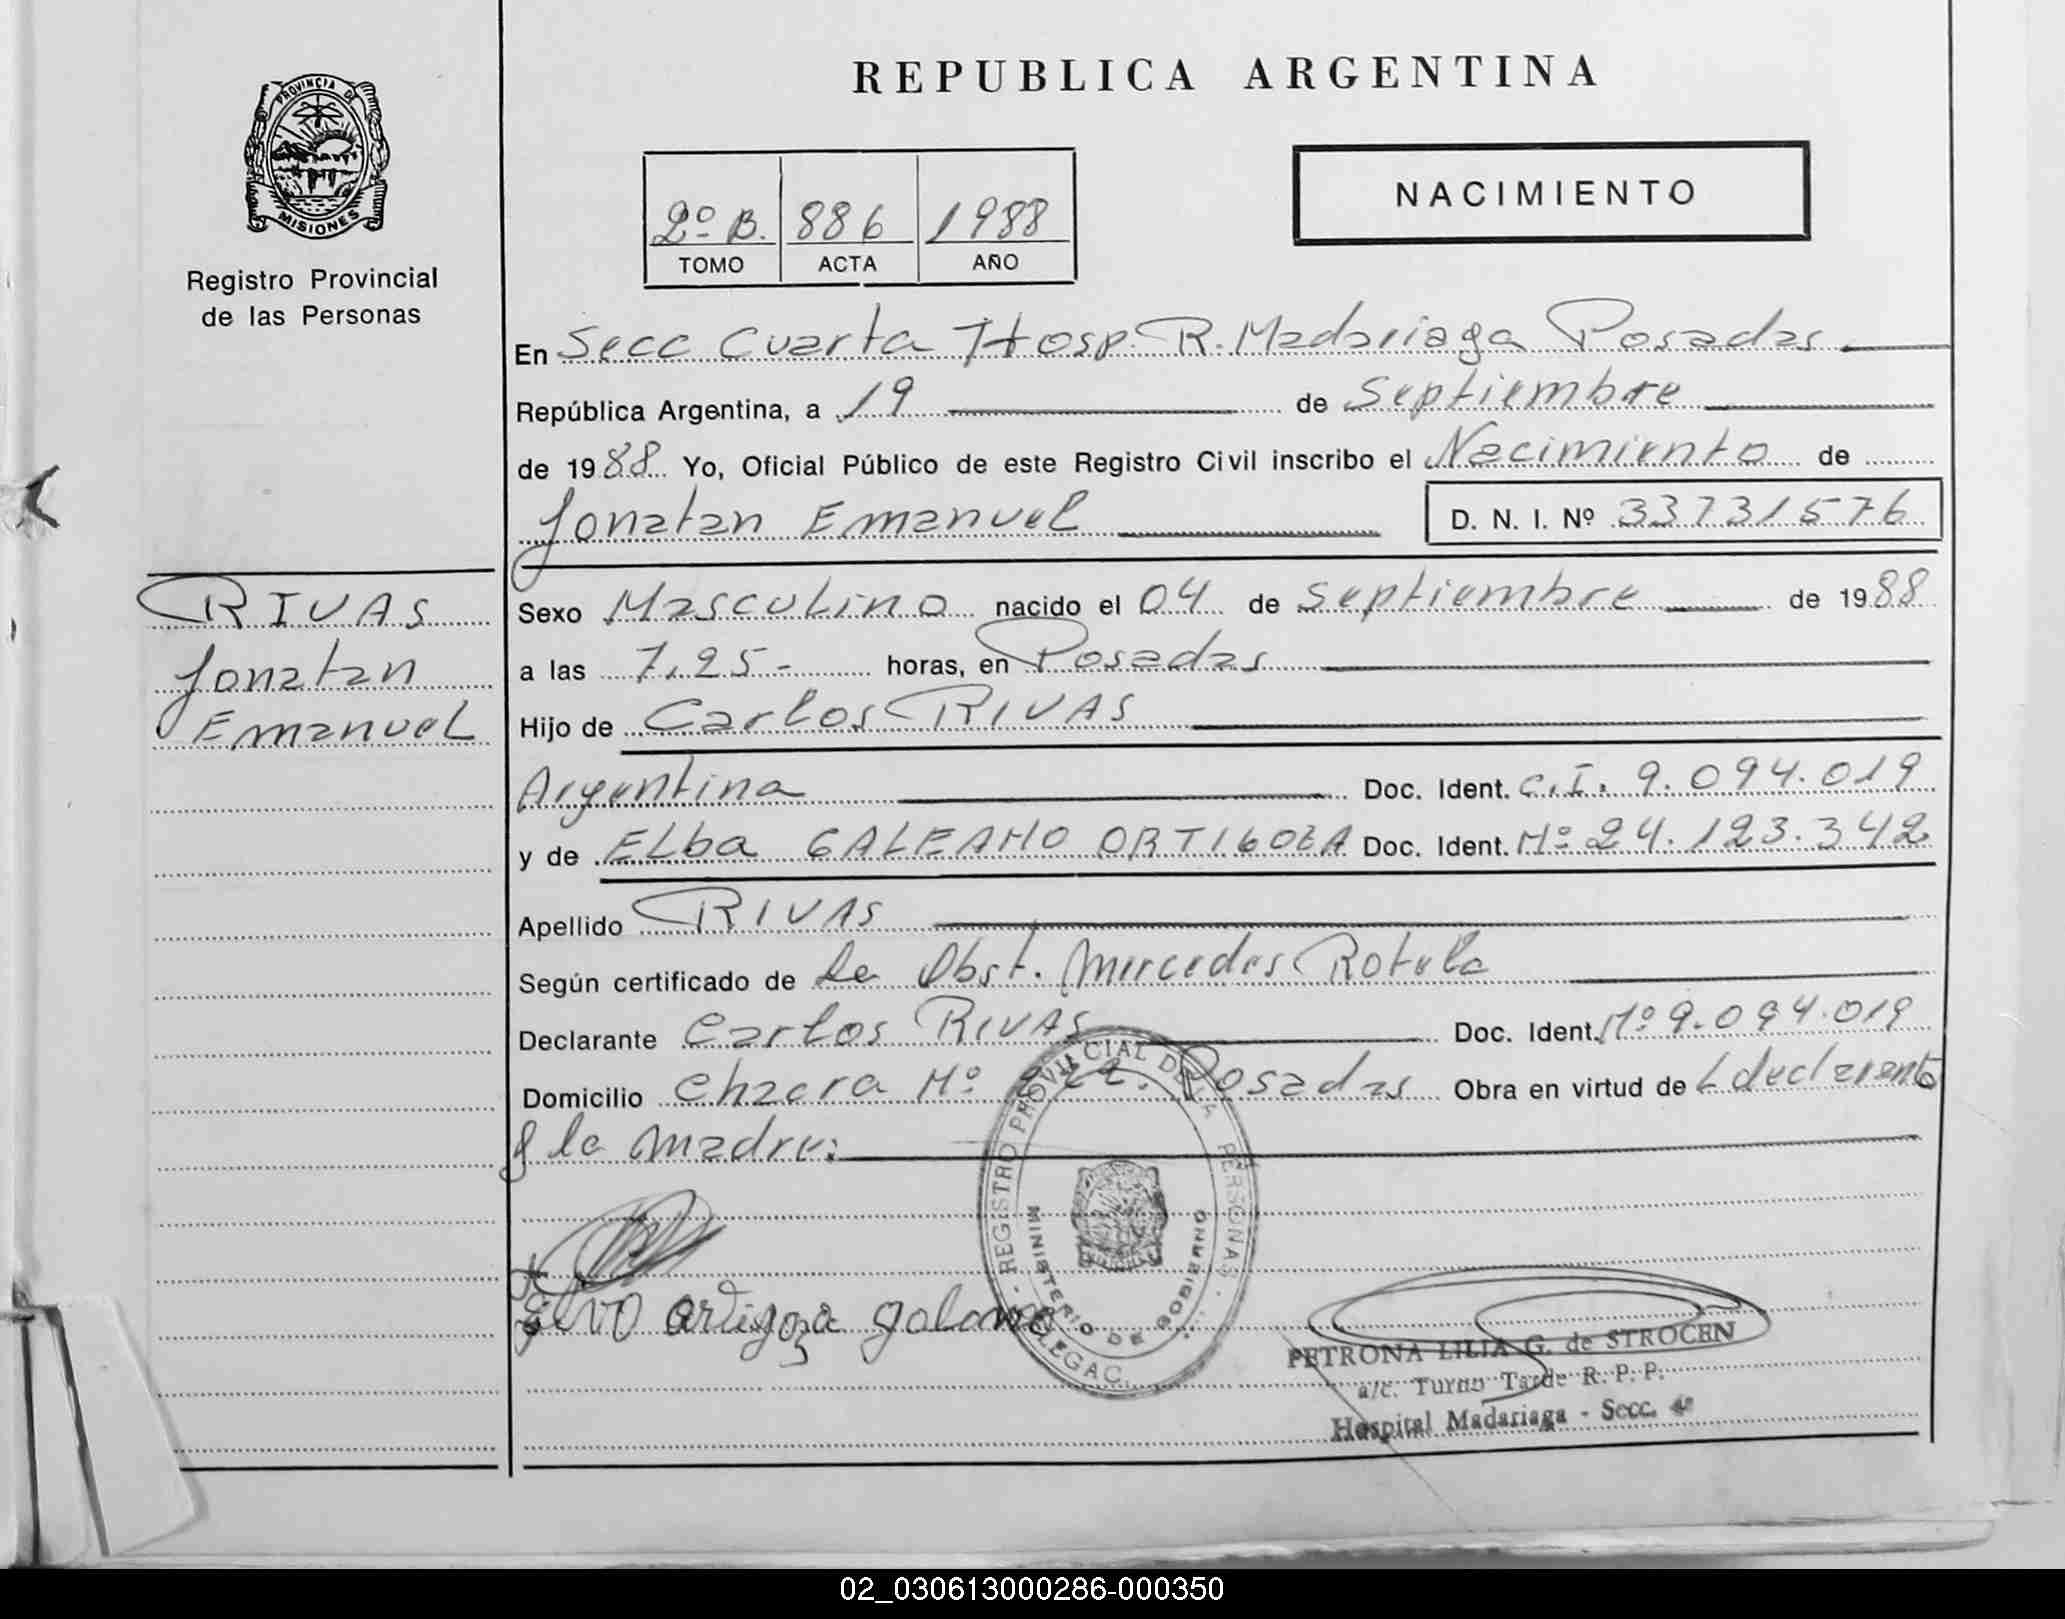 REPUBLICA ARGENTINA
PROVINCIA DE
MISIONES
Registro Provincial
de las Personas
2º B. 886 1988
TOMO ACTA AÑO
NACIMIENTO
En Secc Cuarta Hosp R. Madariaga Posadas
República Argentina, a 19 de Septiembre
de 1988 Yo, Oficial Público de este Registro Civil inscribo el Nacimiento de
Jonatan Emanuel D. N. I. Nº 33731576
RIVAS
Jonatan
Emanuel
Sexo Masculino nacido el 04 de septiembre de 1988
a las 7,25- horas, en Posadas
Hijo de Carlos RIVAS
Argentina Doc. Ident. C.I. 9.094.019
y de ELba GALEANO ORTIGOZA Doc. Ident. Nº 24.123.342
Apellido RIVAS
Según certificado de La Obst. Mercedes Rotela
Declarante Carlos RIVAS Doc. Ident. Nº 9.094.019
Domicilio Chacra Nº Posadas Obra en virtud de
la madre:
REGISTRO PROVINCIAL DE PERSONAS
MINISTERIO DE GOBIERNO
PETRONA LILIA G. de STROCEN
a/c. Turno Tarde R. P. P.
Hospital Madariaga - Secc. 4º
02_030613000286-000350